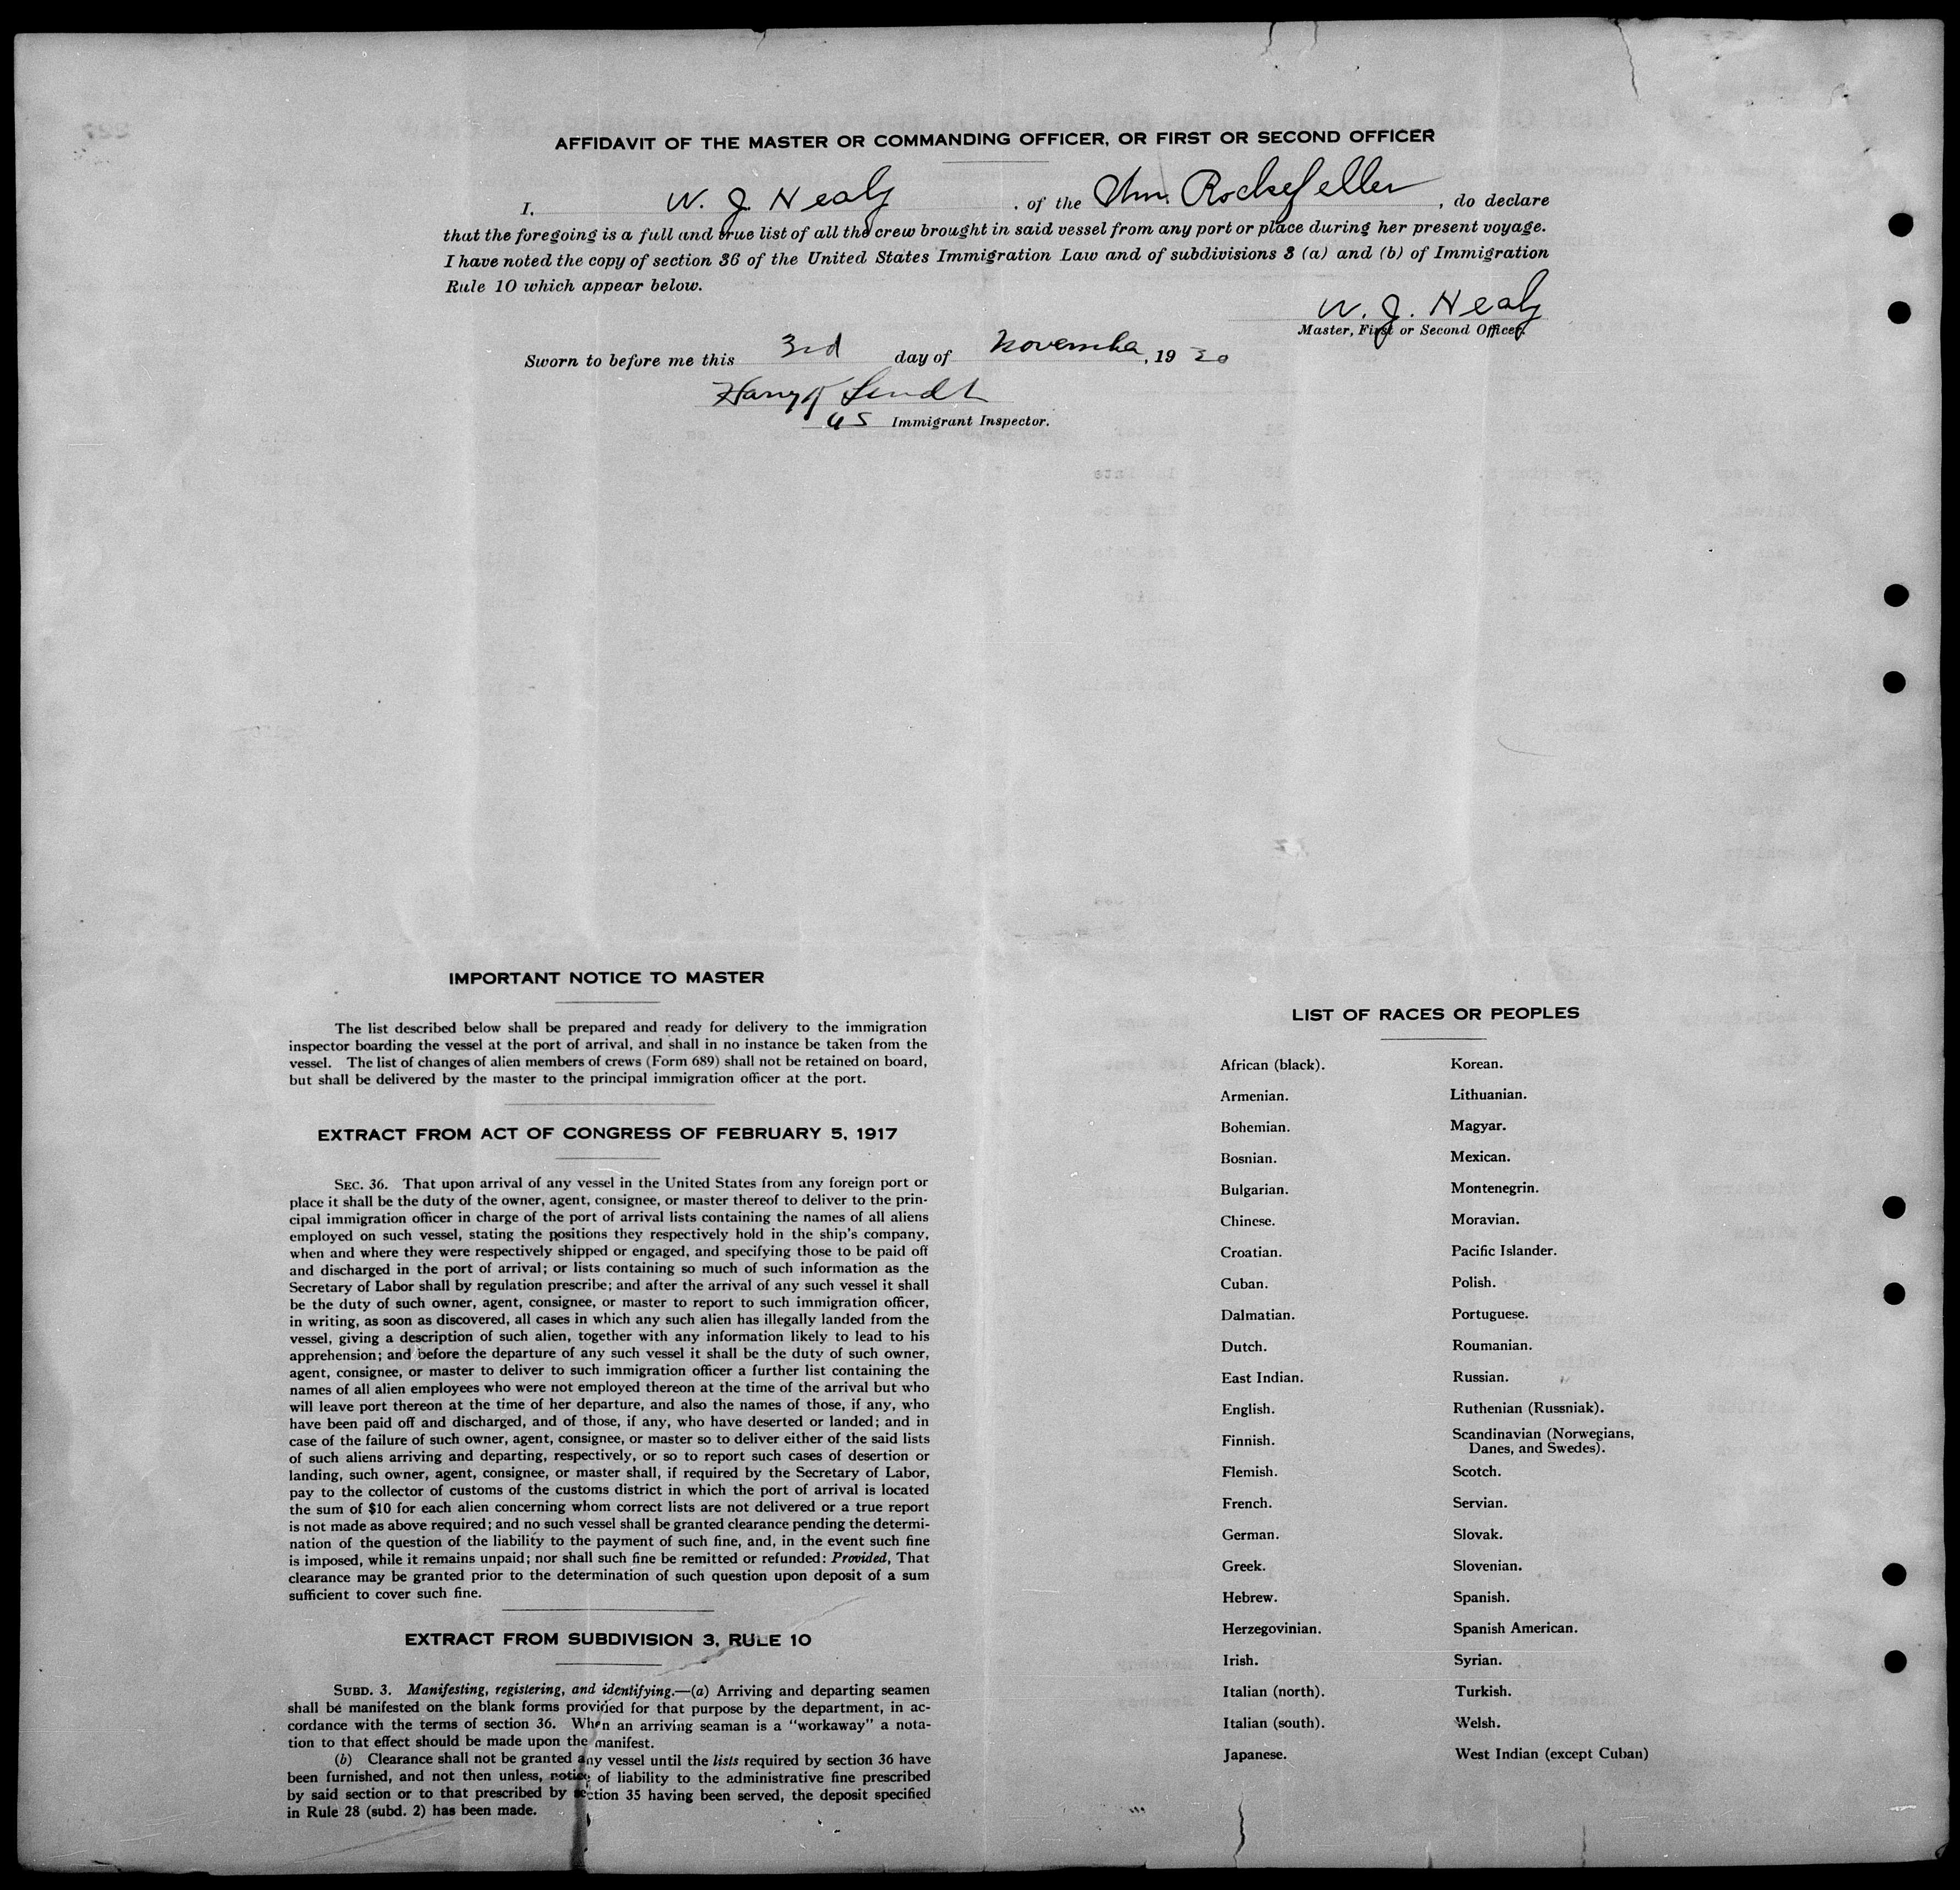 AFFIDAVIT OF THE MASTER OR COMMANDING OFFICER, OR FIRST OR SECOND OFFICER
I, W. J. Healy, of the Wm. Rockefeller, do declare
that the foregoing is a full and true list of all the crew brought in said vessel from any port or place during her present voyage.
I have noted the copy of section 36 of the United States Immigration Law and of subdivisions 3 (a) and (b) of Immigration
Rule 10 which appear below.
W. J. Healy
Master, First or Second Officer.
Sworn to before me this 3rd day of November, 19
Harry
US Immigrant Inspector.
IMPORTANT NOTICE TO MASTER
The list described below shall be prepared and ready for delivery to the immigration
inspector boarding the vessel at the port of arrival, and shall in no instance be taken from the
vessel. The list of changes of alien members of crews (Form 689) shall not be retained on board,
but shall be delivered by the master to the principal immigration officer at the port.
EXTRACT FROM ACT OF CONGRESS OF FEBRUARY 5, 1917
SEC. 36. That upon arrival of any vessel in the United States from any foreign port or
place it shall be the duty of the owner, agent, consignee, or master thereof to deliver to the prin-
cipal immigration officer in charge of the port of arrival lists containing the names of all aliens
employed on such vessel, stating the positions they respectively hold in the ship's company,
when and where they were respectively shipped or engaged, and specifying those to be paid off
and discharged in the port of arrival; or lists containing so much of such information as the
Secretary of Labor shall by regulation prescribe; and after the arrival of any such vessel it shall
be the duty of such owner, agent, consignee, or master to report to such immigration officer,
in writing, as soon as discovered, all cases in which any such alien has illegally landed from the
vessel, giving a description of such alien, together with any information likely to lead to his
apprehension; and before the departure of any such vessel it shall be the duty of such owner,
agent, consignee, or master to deliver to such immigration officer a further list containing the
names of all alien employees who were not employed thereon at the time of the arrival but who
will leave port thereon at the time of her departure, and also the names of those, if any, who
have been paid off and discharged, and of those, if any, who have deserted or landed; and in
case of the failure of such owner, agent, consignee, or master so to deliver either of the said lists
of such aliens arriving and departing, respectively, or so to report such cases of desertion or
landing, such owner, agent, consignee, or master shall, if required by the Secretary of Labor,
pay to the collector of customs of the customs district in which the port of arrival is located
the sum of $10 for each alien concerning whom correct lists are not delivered or a true report
is not made as above required; and no such vessel shall be granted clearance pending the determi-
nation of the question of the liability to the payment of such fine, and, in the event such fine
is imposed, while it remains unpaid; nor shall such fine be remitted or refunded: Provided, That
clearance may be granted prior to the determination of such question upon deposit of a sum
sufficient to cover such fine.
EXTRACT FROM SUBDIVISION 3, RULE 10
SUBD. 3. Manifesting, registering, and identifying.—(a) Arriving and departing seamen
shall be manifested on the blank forms provided for that purpose by the department, in ac-
cordance with the terms of section 36. When an arriving seaman is a "workaway" a nota-
tion to that effect should be made upon the manifest.
(b) Clearance shall not be granted any vessel until the lists required by section 36 have
been furnished, and not then unless, notice of liability to the administrative fine prescribed
by said section or to that prescribed by section 35 having been served, the deposit specified
in Rule 28 (subd. 2) has been made.
LIST OF RACES OR PEOPLES
African (black).
Armenian.
Bohemian.
Bosnian.
Bulgarian.
Chinese.
Croatian.
Cuban.
Dalmatian.
Dutch.
East Indian.
English.
Finnish.
Flemish.
French.
German.
Greek.
Hebrew.
Herzegovinian.
Irish.
Italian (north).
Italian (south).
Japanese.
Korean.
Lithuanian.
Magyar.
Mexican.
Montenegrin.
Moravian.
Pacific Islander.
Polish.
Portuguese.
Roumanian.
Russian.
Ruthenian (Russniak).
Scandinavian (Norwegians,
Danes, and Swedes).
Scotch.
Servian.
Slovak.
Slovenian.
Spanish.
Spanish American.
Syrian.
Turkish.
Welsh.
West Indian (except Cuban)